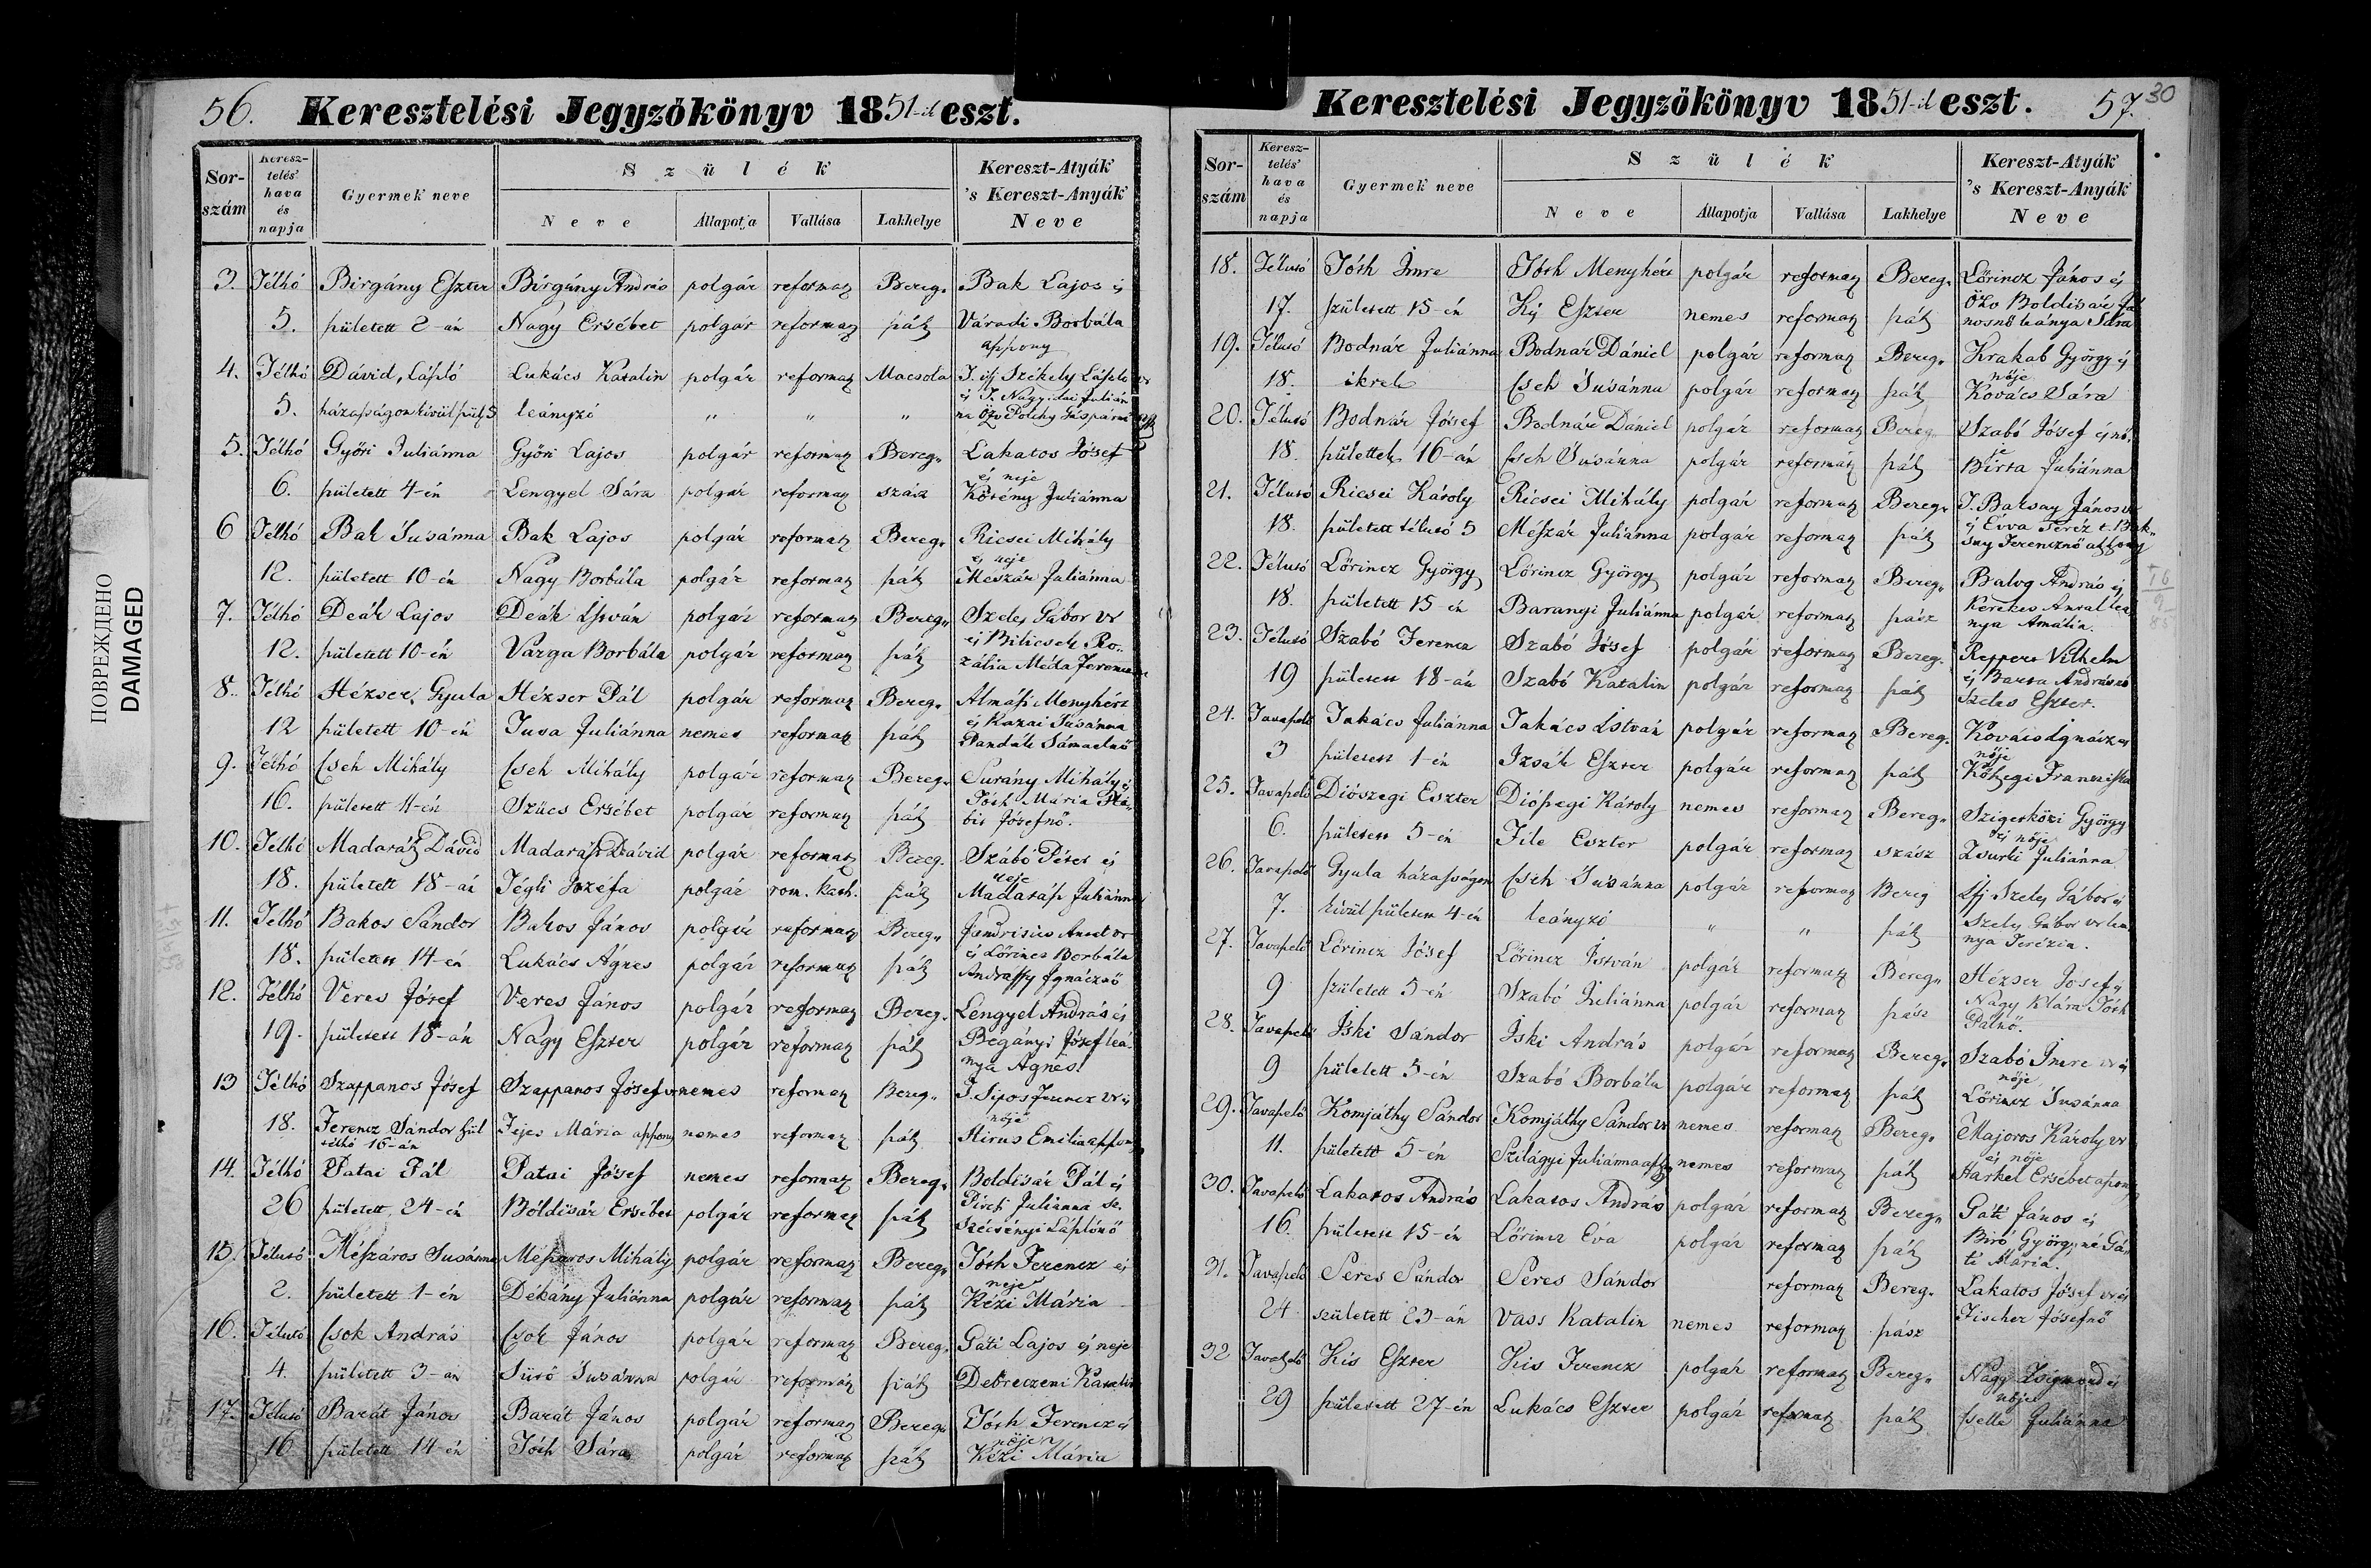 ПОВРЕЖДЕНО
DAMAGED
56.
Keresztelési Jegyzőkönyv 1851-ik eszt.
Sor-szám Keresz-telés' hava és napja Gyermek' neve Szülék Neve Állapotja Vallása Lakhelye Kereszt-Atyák 's Kereszt-Anyák Neve
3. Télhó Birgány Eszter Birgány András polgár reformaz Bereg„ Bak Lajos és
5. született 2-án Nagy Ersébet polgár reformaz szász Váradi Borbála
appony
4. Télhó Dávid, László Lukács Katalin polgár reformaz Macsola T. ifj Székely László ur
5. házasságon kivül leányzó „ „ „
5. Télhó Győri Juliánna Győri Lajos polgár reformaz Bereg„ Lakatos Jósef
és neje
6. született 4-én Lengyel Sára polgár reformaz szász Juliánna
6 Télhó Bak Susánna Bak Lajos polgár reformaz Bereg„ Ricsei Mihály
és neje
12. született 10-én Nagy Borbála polgár reformaz szász Mészár Juliánna
7. Télhó Deák Lajos Deák István polgár reformaz Bereg„ Szeles Gábor ur
12. született 10-én Varga Borbála polgár reformaz szász
8. Télhó Hézser, Gyula Hézser Pál polgár reformaz Bereg„ Almási Menyhért
és Kazai Susánna
12 született 10-én Tusa Juliánna nemes reformaz szász
9. Télhó Cseh Mihály Cseh Mihály polgár reformaz Bereg„ Surány Mihály és
Tóth Mária
16. született 11-én Szücs Ersébet polgár reformaz szász Jósefnő.
10. Télhó Madarász Dávid Madarász Dávid polgár reformaz Bereg. Szabó Péter és
neje
18. született 18-án Tégli Jozéfa polgár rom. kath. szász Madarász Juliánna
11. Télhó Bakos Sándor Bakos János polgár reformaz Bereg„ ur
és Lőrincz Borbála
18. született 14-én Lukács Ágnes polgár reformaz szász Andrássy Ignácznő
12. Télhó Veres Jósef Veres János polgár reformaz Bereg„ Lengyel András és
19. született 18-án Nagy Eszter polgár reformaz szász Begányi Jósef leá-
nya Ágnes.
13 Télhó Szappanos Jósef Szappanos Jósef ur nemes reformaz Bereg„ T. Sipos Ferencz ur és
nője
18. Ferencz Sándor szül Fejes Mária appony nemes reformaz szász Hirus Emilia appony
télhó 16-án
14. Télhó Patai Pál Patai Jósef nemes reformaz Bereg„ Boldisár Pál és
26 született 24-én Bóldisár Ersébet polgár reformaz szász
15. Télutó Mészáros Susánna Mészáros Mihály polgár reformaz Bereg„ Tóth Ferencz és
neje
2. született 1-én Dékány Juliánna polgár reformaz szász Kézi Mária
16. Télutó Csok András Csok János polgár reformaz Bereg„ Gáti Lajos és neje
4. született 3-án Sürő Susánna polgár reformaz szász Debreczeni Katalin
17. Télutó Barát János Barát János polgár reformaz Bereg„ Tóth Ferencz és
nője
16 született 14-én Tóth Sára polgár reformaz szász Kézi Mária
Keresztelési Jegyzőkönyv 1851-ik eszt.
57.
30
Sor-szám Keresz-telés' hava és napja Gyermek' neve Szülék Neve Állapotja Vallása Lakhelye Kereszt-Atyák 's Kereszt-Anyák Neve
18. Télutó Tóth Imre Tóth Menyhért polgár reformaz Bereg„ Lőrincz János és
17. született 15-én Kis Eszter nemes reformaz szász özv Boldisár Já-
nosnő leánya Sára
19. Télutó Bodnár Juliánna Bodnár Dániel polgár reformaz Bereg„ Krakab György és
nője
18. ikrek Cseh Susánna polgár reformaz szász Kovács Sára
20. Télutó Bodnár Jósef Bodnár Dániel polgár reformaz Bereg„ Szabó Jósef és nő-
je
18. születtek 16-án Cseh Susánna polgár reformaz szász Birta Juliánna
21. Télutó Ricsei Károly Ricsei Mihály polgár reformaz Bereg„ T. Baksay János ur
18. született télutó 5 Mészár Juliánna polgár reformaz szász és Évva Teréz t. Bak-
say Ferencznő appony
22. Télutó Lőrincz György Lőrincz György polgár reformaz Bereg„ Balog András és
18. született 15-én Baranyi Juliánna polgár reformaz szász Kerekes Antal leá-
nya Amália.
23. Télutó Szabó Ferencz Szabó Jósef polgár reformaz Bereg. Reppert Vilhelm
és Barta Andrásnő
19 született 18-án Szabó Katalin polgár reformaz szász Szeles Eszter.
24. Tavaszelő Takács Juliánna Takács István polgár reformaz Bereg. Kovács Ignácz és
nője
3 született 1-én Izsák Eszter polgár reformaz szász Kőszegi Francziska
25. Tavaszelő Diószegi Eszter Diószegi Károly nemes reformaz Bereg„ Szigetközi György
és nője
6. született 5-én File Eszter polgár reformaz szász Zsurki Juliánna
26. Tavaszelő Gyula házasságon Cseh Susánna polgár reformaz Bereg Ifj Szeles Gábor és
7. kivül született 4-én leányzó „ „ szász Szeles Gábor ur leá-
nya Terézia.
27. Tavaszelő Lőrincz Jósef Lőrincz István polgár reformaz Bereg„ Hézser Josef és
9 született 5-én Szabó Juliánna polgár reformaz szász Nagy Klára Tóth
Pálnő.
28. Tavaszelő Iski Sándor Iski András polgár reformaz Bereg„ Szabó Imre ur és
nője
9 született 5-én Szabó Borbála polgár reformaz szász Lőrincz Susánna
29. Tavaszelő Komjáthy Sándor Komjáthy Sándor ur nemes reformaz Bereg„ Majoros Károly ur
és nője
11. született 5-én Szilágyi Juliánna assz nemes reformaz szász Harkel Ersébet
30. Tavaszelő Lakatos András Lakatos András polgár reformaz Bereg„ Gáti János és
16. született 15-én Lőrincz Éva polgár reformaz szász Biró Györgyné Gá-
ti Mária.
31. Tavaszelő Seres Sándor Seres Sándor reformaz Bereg„ Lakatos Jósef ur és
24 született 23-án Vass Katalin nemes reformaz szász Fischer Jósefnő
32 Tavaszelő Kis Eszter Kis Ferencz polgár reformaz Bereg„ Nagy Zsigmond és
nője
29 született 27-én Lukács Eszter polgár reformaz szász Cselle Juliánna